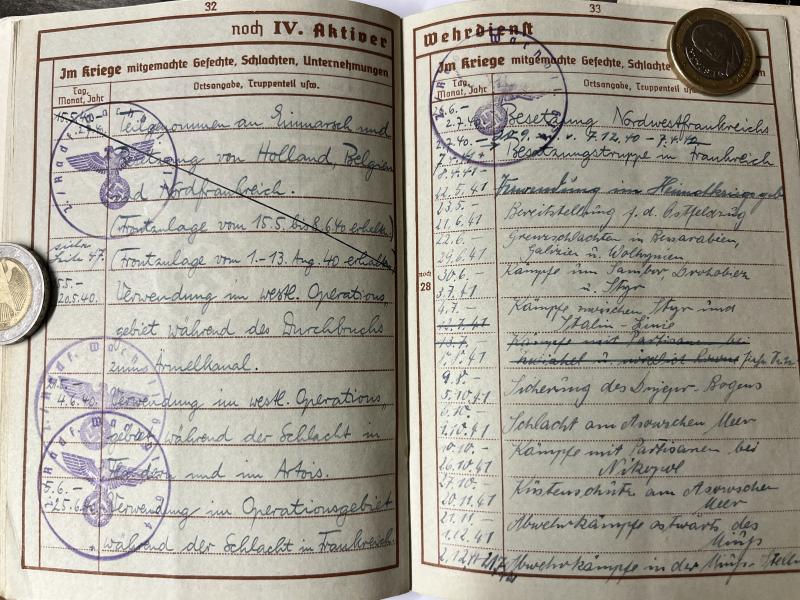 32
noch IV. Aktiver
Im Kriege mitgemachte Gefechte, Schlachten, Unternehmungen
Tag, Monat, Jahr
Ortsangabe, Truppenteil usw.
Teilgenommen an Einmarsch und
Besetzung von Holland, Belgien
und Nordfrankreich.
(Frontzulage vom 15.5. bis 8.6.40 erhalten)
siehe Seite 47.
(Frontzulage vom 1.-13. Aug. 40 erhalten)
20.5.40.
Verwendung im westl. Operations
gebiet während des Durchbruchs
zum Ärmelkanal.
4.6.40.
Verwendung im westl. Operations
gebiet während der Schlacht in
Flandern und im Artois.
-25.6.40.
Verwendung im Operationsgebiet
während der Schlacht in Frankreich.
33
Wehrdienst
Im Kriege mitgemachte Gefechte, Schlachten,
Tag, Monat, Jahr
Ortsangabe, Truppenteil usw.
26.6.-
2.7.40.
Besetzung Nordwestfrankreichs
7.12.40 - 7.4.42
Besetzungstruppe in Frankreich
8.4.41
22.5.41
Verwendung im Heimatkriegsgeb
23.5.-
21.6.41
Bereitstellung f. d. Ostfeldzug
22.6.-
29.6.41
Grenzschlachten in Bessarabien,
Galizien u. Wolhynien
noch 28
30.6.-
3.7.41
Kämpfe um Sambor, Drohobicz
u. Styr
4.7.-
12.7.41
Kämpfe zwischen Styr und
Stalin-Linie
13.7.-
Kämpfe mit Partisanen bei
9.8.-
5.10.41
Sicherung des Dnjepr-Bogens
6.10.-
Schlacht am Asowschen Meer
10.10.-
26.10.41
Kämpfe mit Partisanen bei
Nikopol
27.10.-
20.11.41
Küstenschutz am Asowschen
Meer
21.11.-
1.12.41
Abwehrkämpfe ostwärts des
Miuß
2.12.41
Abwehrkämpfe in der Miuß-Stellu